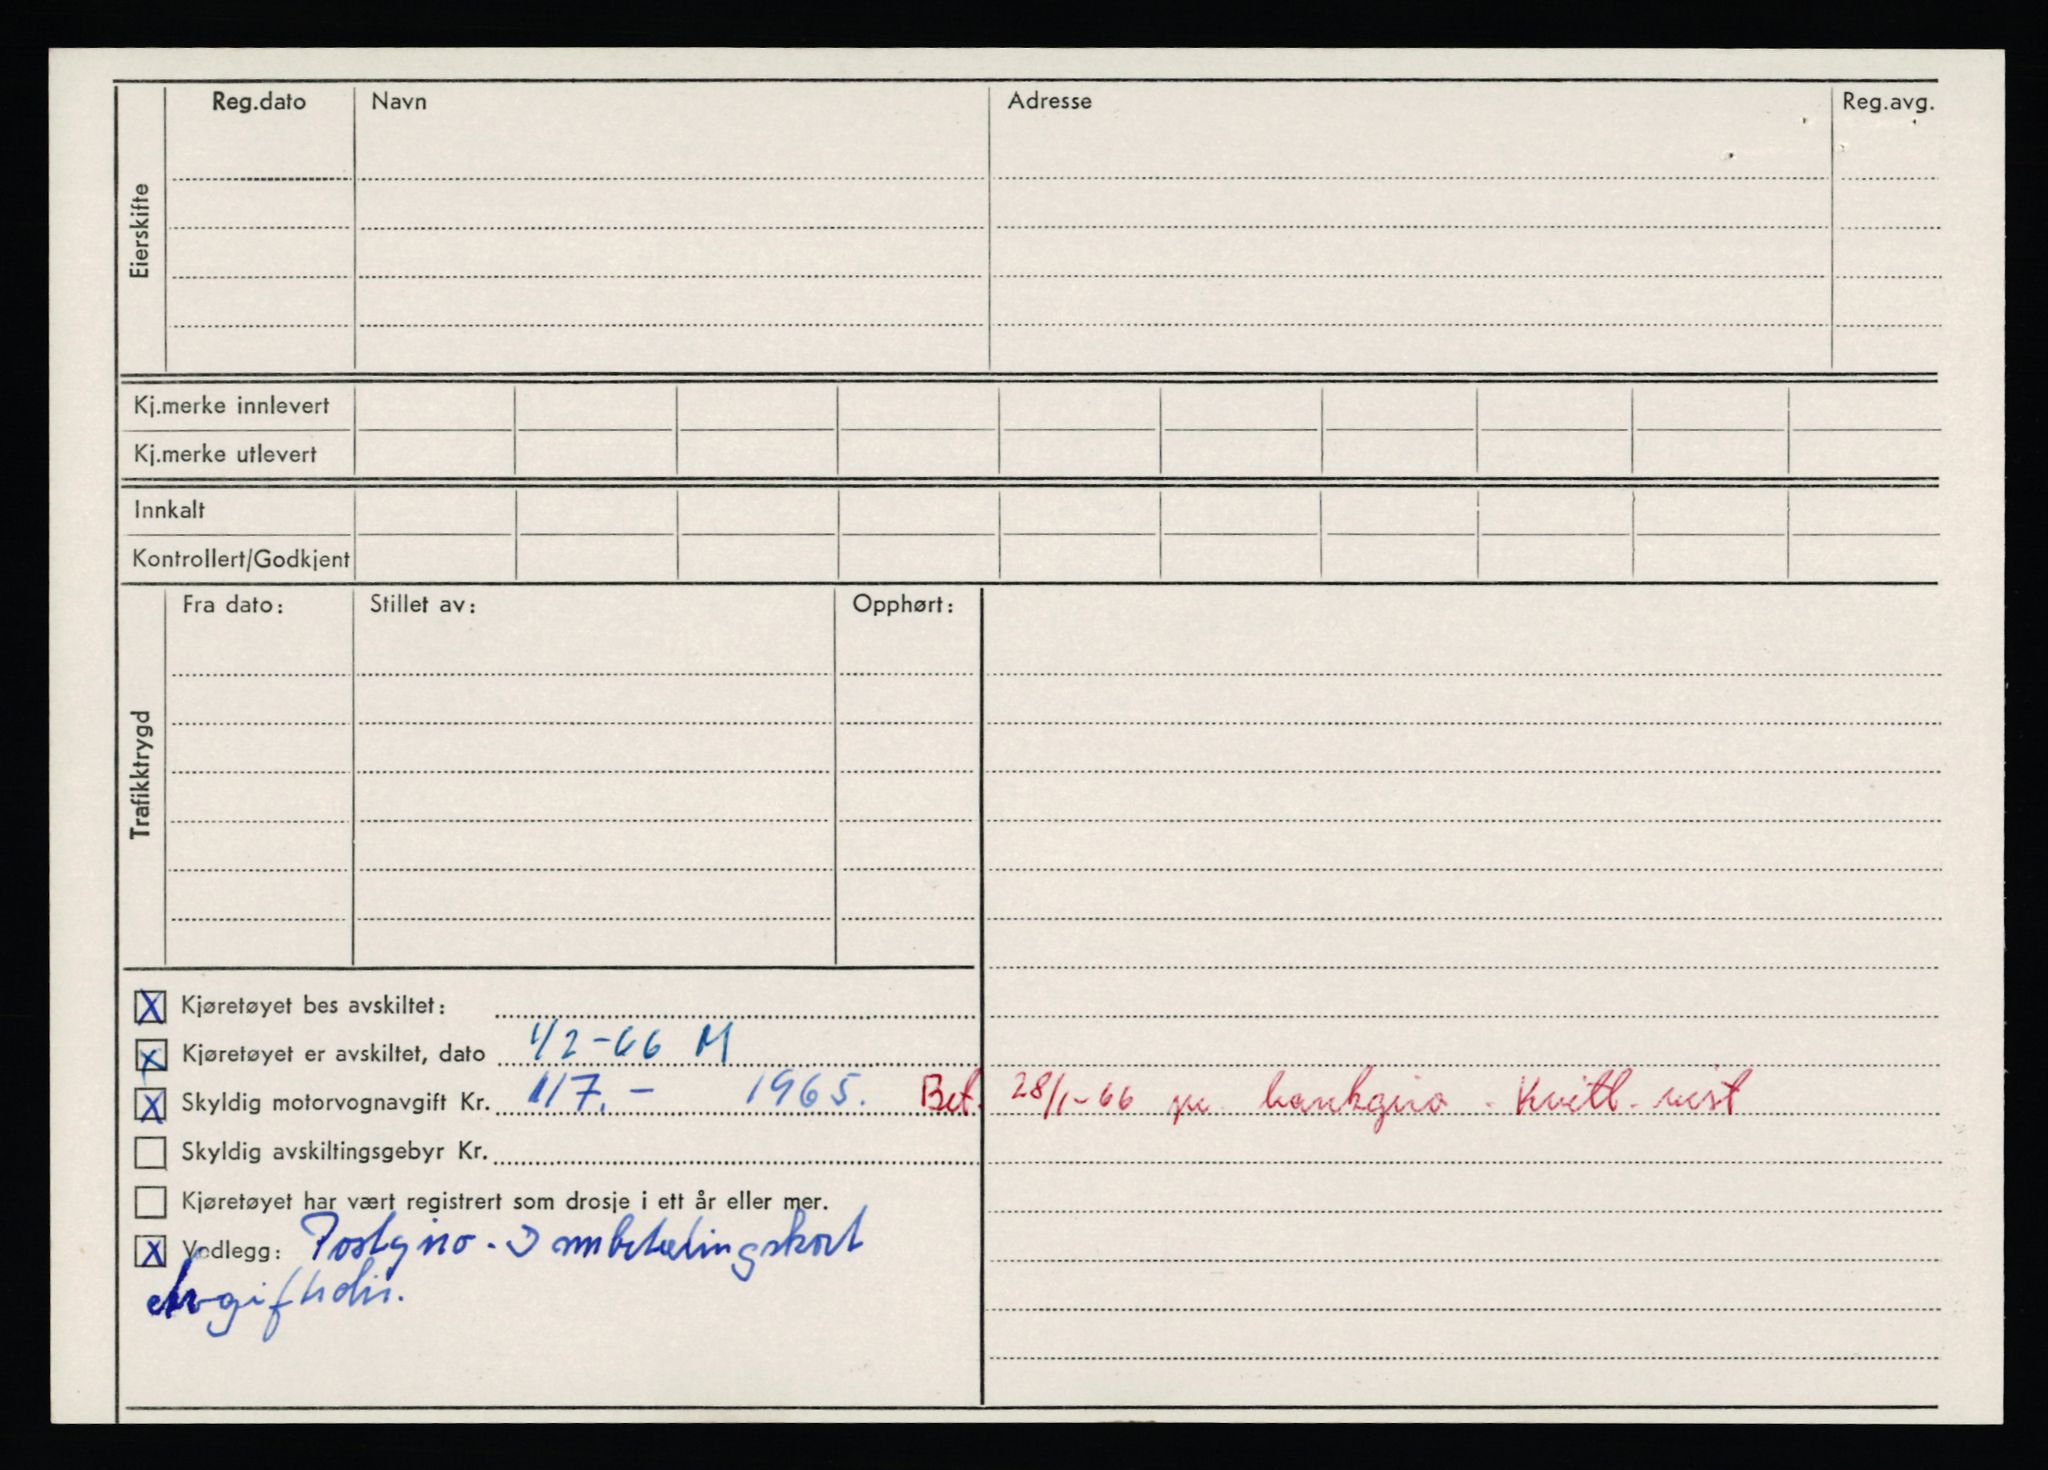 Reg.dato Navn Adresse Reg.avg.
Eierskifte
Kj.merke innlevert
Kj.merke utlevert
Innkalt
Kontrollert/Godkjent
Fra dato: Stillet av: Opphørt:
Trafikktrygd
X Kjøretøyet bes avskiltet:
X Kjøretøyet er avskiltet, dato 1/2-66 M
X Skyldig motorvognavgift Kr. 117.- 1965. Bet. 28/1-66 pr. bankgiro - Kvitt. vist
Skyldig avskiltingsgebyr Kr.
Kjøretøyet har vært registrert som drosje i ett år eller mer.
X Vedlegg: Postgiro - Innbetalingskort
Avgiftsdir.